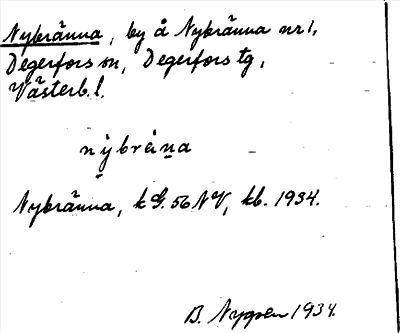 Nybränna, by å Nybränna nr 1,
Degerfors sn, Degerfors tg,
Västerb. l.
nýbreina
Nybränna, k G. 56 NV, kb. 1934.
B. Nygren 1934.